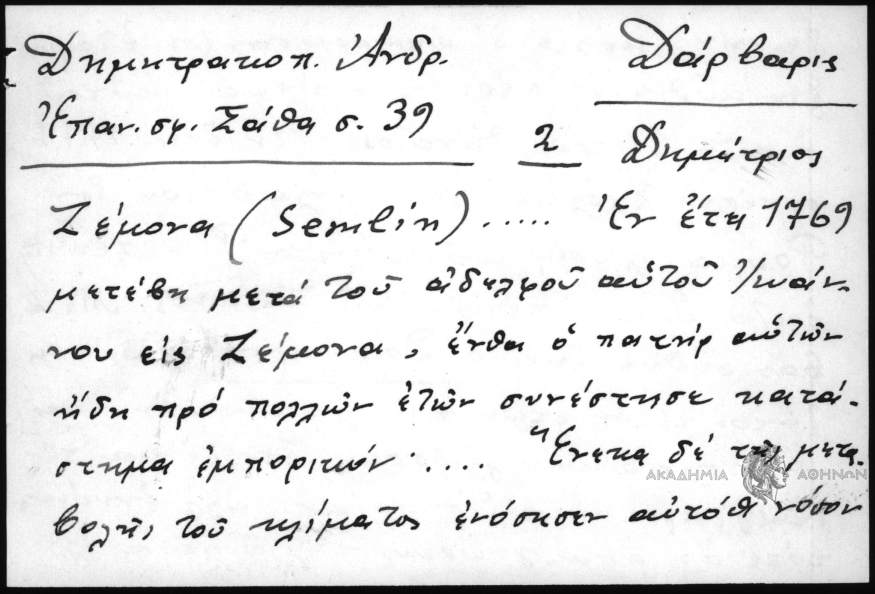 Δημητρακοπ. Ἀνδρ.
Δάρβαρις
Ἐπαν. σφ. Σάθα σ. 39
2
Δημήτριος
Ζέμονα (Semlin) ..... Ἐν ἔτει 1769
μετέβη μετά τοῦ ἀδελφοῦ αὑτοῦ Ἰωάν-
νου εἰς Ζέμονα, ἔνθα ὁ πατήρ αὐτῶν
ἤδη πρό πολλῶν ἐτῶν συνέστησε κατά-
στημα ἐμπορικόν .... Ἕνεκα δέ τῆς μετα-
βολῆς τοῦ κλίματος ἐνόσησεν αὐτόθι νόσον
ΑΚΑΔΗΜΙΑ ΑΘΗΝΩΝ